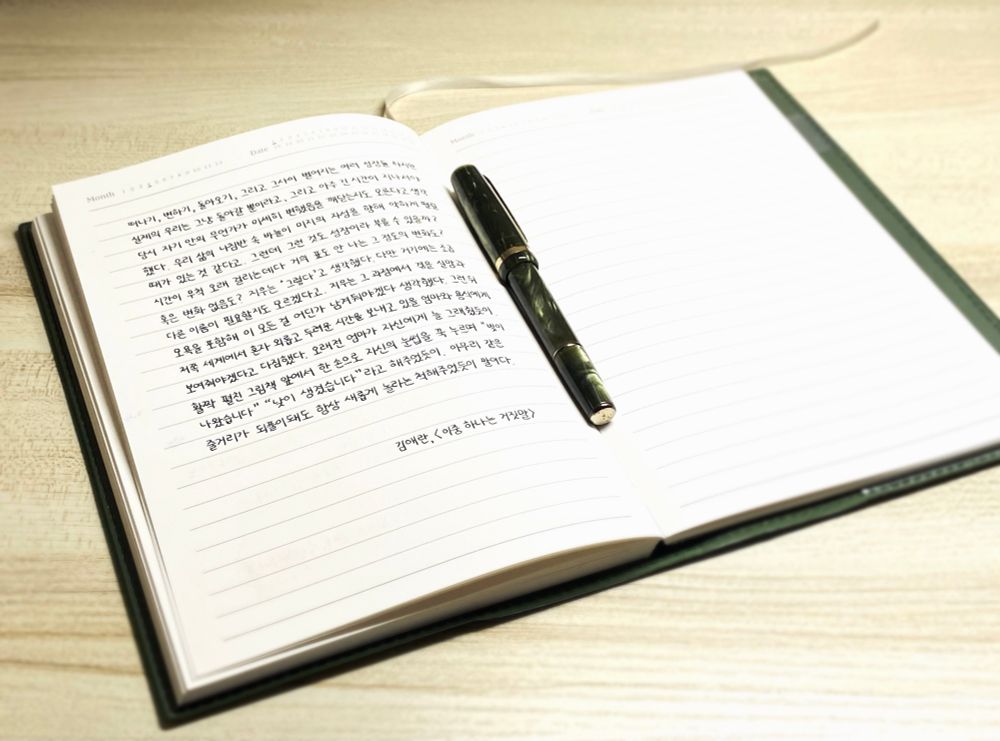 Month 1 2 3 4 5 6 7 8 9 10 11 12
Date
떠나기, 변하기, 돌아오기, 그리고 그사이 벌어지는 여러 성장들. 하지만
실제의 우리는 그냥 돌아갈 뿐이라고, 그리고 아주 긴 시간이 지나서야
당시 자기 안의 무언가가 미세히 변했음을 깨닫는지도 모른다고 생각
했다. 우리 삶의 나침반 속 바늘이 미지의 자성을 향해 약하게 떨릴
때가 있는 것 같다고. 그런데 그런 것도 성장이라 부를 수 있을까?
시간이 무척 오래 걸리는데다 거의 표도 안 나는 그 정도의 변화도?
혹은 변화 없음도? 지우는 '그렇다'고 생각했다. 다만 거기에는 조금
다른 이름이 필요할지도 모르겠다고. 지우는 그 과정에서 겪을 실망과
모욕을 포함해 이 모든 걸 어딘가 남겨둬야겠다 생각했다. 그런 뒤
저쪽 세계에서 혼자 외롭고 두려운 시간을 보내고 있을 엄마와 용식에게
보여줘야겠다고 다짐했다. 오래전 엄마가 자신에게 늘 그래줬듯이.
활짝 펼친 그림책 앞에서 한 손으로 자신의 눈썹을 꾹 누르며 "범이
나왔습니다" "낮이 생겼습니다"라고 해주었듯이. 아무리 같은
줄거리가 되풀이돼도 항상 새롭게 놀라는 척해주었듯이 말이다.
김애란, <이중 하나는 거짓말>
Month